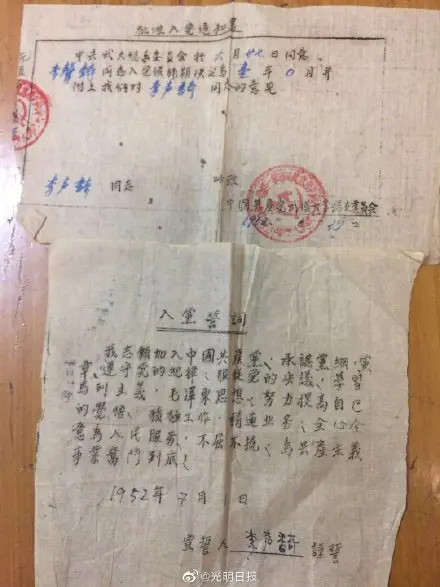 批准入党通知書
中共武大總支委員会於六月廿七日同意
同志入党候補期決定為壹年0月并
附上我們對李声 同志的意見
此致
李声 同志
中国共產党武漢大學總支委員会
入黨誓詞
我志願加入中國共產黨、承認黨綱、黨
章遵守黨的紀律服從黨的決議、學習
馬列主義、毛澤東思想、努力提高自己
的覺悟,積極工作,精通業務、全心全
意為人民服務,不屈不撓、為共產主義
事業奮鬥到底!
1952年7月1日
宣誓人 李声 謹誓
@光明日报